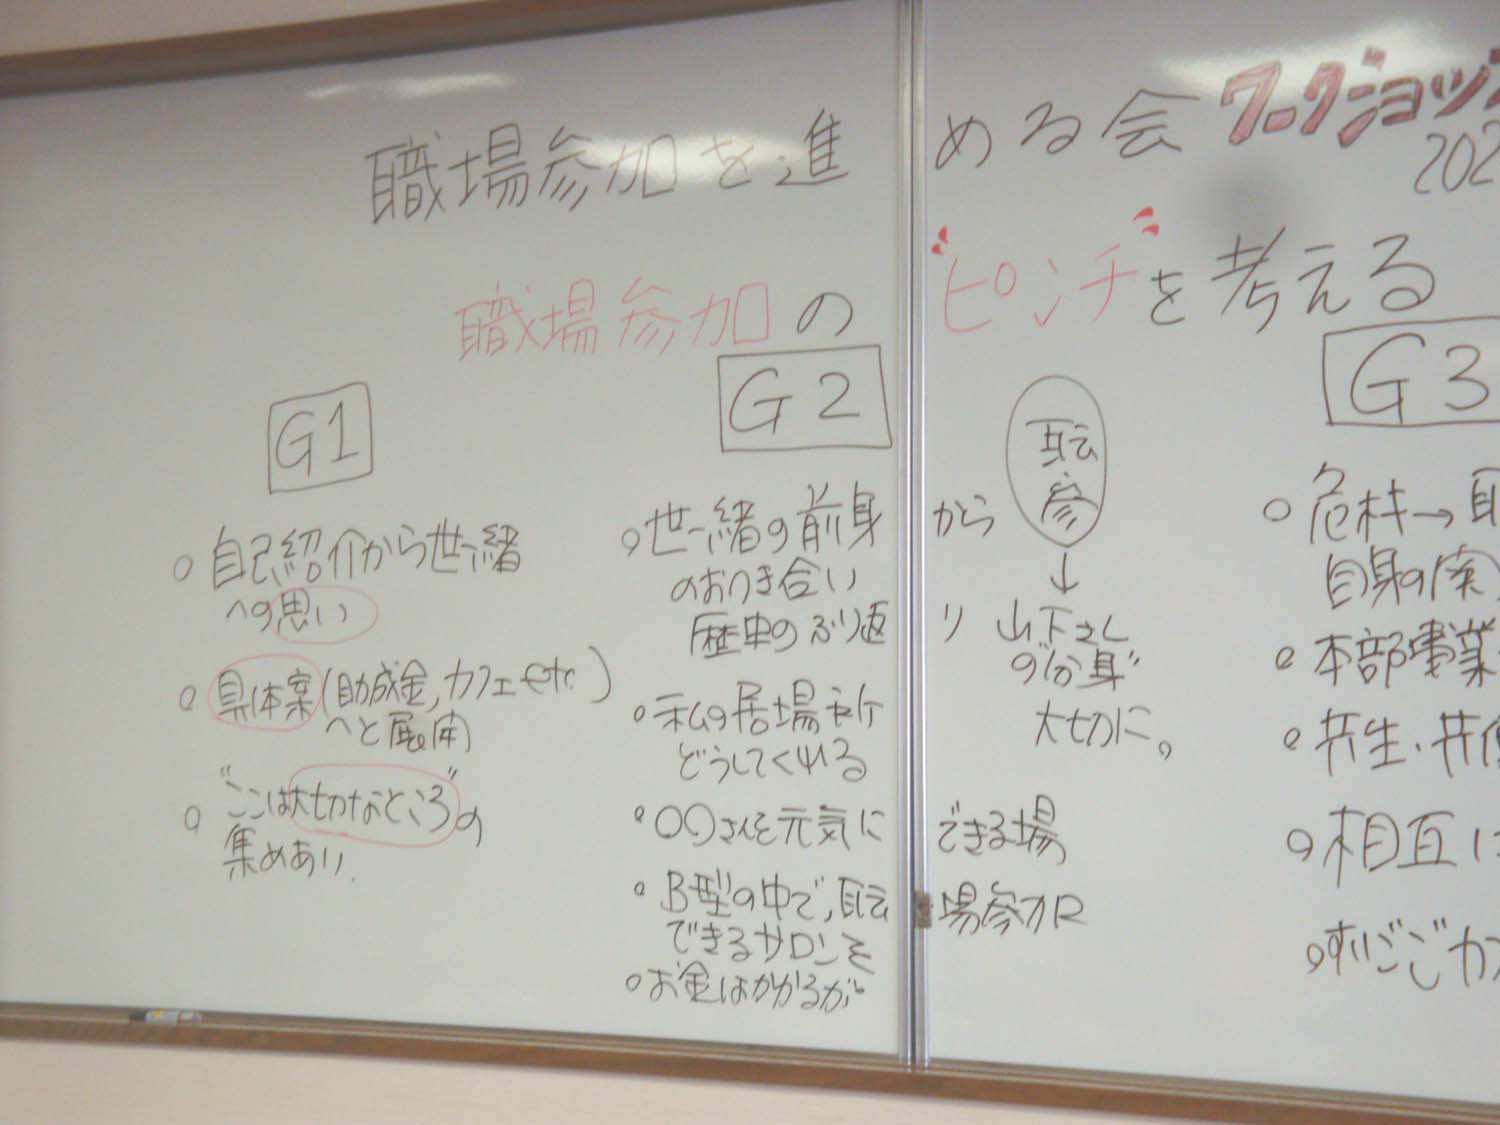 職場参加を進める会 ワークショップ
202
職場参加の"ピンチ"を考える
G1
○自己紹介から世一緒
への思い
○具体案(助成金,カフェetc.)
へと展開
○"ここは大切なところ"の
集めあり.
G2
○世一緒の前身から
のおつき合い
歴史のふり返り
○私の居場所
どうしてくれる
○○○さんを元気にできる場
○B型の中で,耺場参加
できるサロンを
○お金はかかるが
耺
参
↓
山下さん
の"分身"
大切に。
G3
○危機→
自身の
○本部事業
○共生・共
○相互
○すいごごカフ